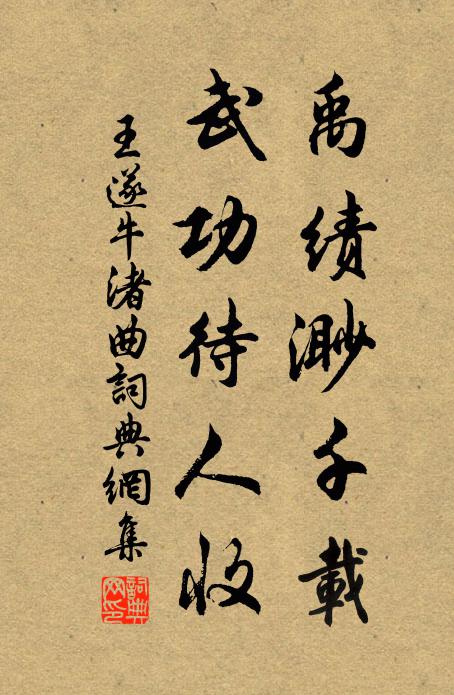 禹绩渺千载
武功待人收
王遂牛渚曲詞典網集
詞典网印